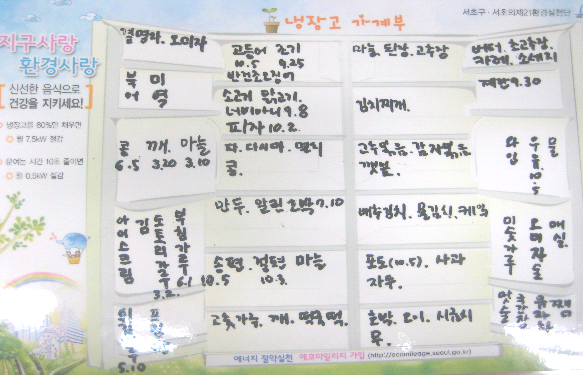 서초구 · 서초의제21환경실천단
냉장고 가계부
지구사랑
환경사랑
신선한 음식으로
건강을 지키세요!
냉장고를 60%만 채우면
월 7.5kW 절감
문여는 시간 10초 줄이면
월 0.9kW 절감
결명자. 오미자
북어
미역
콩 6.5
깨. 3.20
마늘 3.10
아이스크림
김
도토리가루 3.2.
6.1
고등어 조기
10.5 9.25
반건조오징어
소고기 닭고기.
너비아니 9.8
피자 10.2.
파. 다시마. 멸치
콩.
만두. 말린호박 7.10
송편. 절편 마늘
10.5 10.3.
고춧가루. 깨. 떡국떡.
마늘. 된장. 고추장
김치찌개.
고추볶음. 감자볶음
깻잎.
배추김치. 물김치.
포도(10.5). 사과
자두.
호박. 오이.
묵.
버터. 초고추장.
카레. 소세지
계란 9.30
우유 10.5
물
미숫가루
오미자
매실
맛술
5.10
에너지 절약실천 에코마일리지 가입 (http://ecomileage.seoul.go.kr)